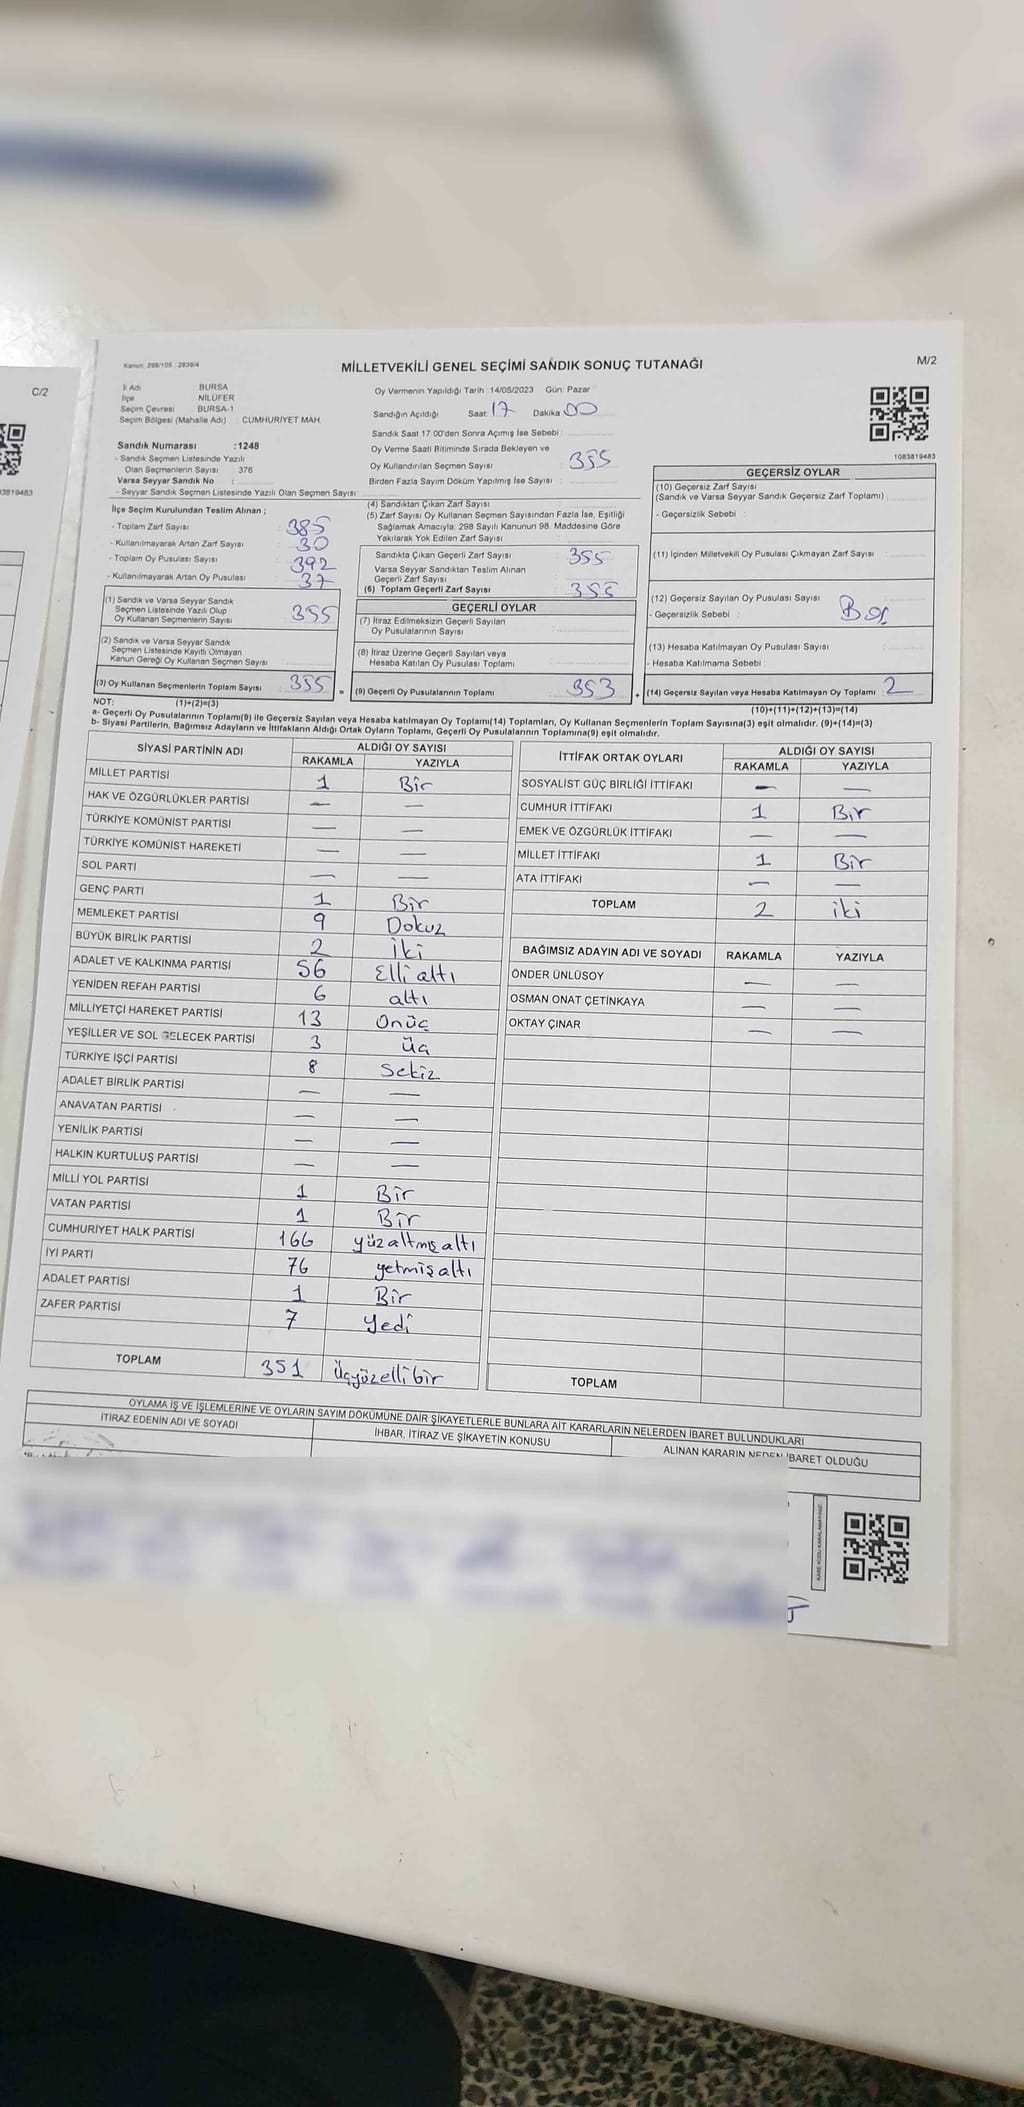 C/2
3819483
Kanun: 298/105 : 2839/4
MİLLETVEKİLİ GENEL SEÇİMİ SANDIK SONUÇ TUTANAĞI
M/2
İl Adı BURSA
İlçe NİLÜFER
Seçim Çevresi BURSA-1
Seçim Bölgesi (Mahalle Adı) CUMHURİYET MAH.
Sandık Numarası :1248
- Sandık Seçmen Listesinde Yazılı
Olan Seçmenlerin Sayısı : 376
Varsa Seyyar Sandık No :
- Seyyar Sandık Seçmen Listesinde Yazılı Olan Seçmen Sayısı:
Oy Vermenin Yapıldığı Tarih :14/05/2023 Gün: Pazar
Sandığın Açıldığı Saat: 17 Dakika 00
Sandık Saat 17:00'den Sonra Açımış İse Sebebi :
Oy Verme Saati Bitiminde Sırada Bekleyen ve
Oy Kullandırılan Seçmen Sayısı 355
Birden Fazla Sayım Döküm Yapılmış İse Sayısı :
1083819483
İlçe Seçim Kurulundan Teslim Alınan ;
- Toplam Zarf Sayısı 385
- Kullanılmayarak Artan Zarf Sayısı 30
- Toplam Oy Pusulası Sayısı 392
- Kullanılmayarak Artan Oy Pusulası 37
(1) Sandık ve Varsa Seyyar Sandık
Seçmen Listesinde Yazılı Olup
Oy Kullanan Seçmenlerin Sayısı 355
(2) Sandık ve Varsa Seyyar Sandık
Seçmen Listesinde Kayıtlı Olmayan
Kanun Gereği Oy Kullanan Seçmen Sayısı
(3) Oy Kullanan Seçmenlerin Toplam Sayısı 355 =
(1)+(2)=(3)
(4) Sandıktan Çıkan Zarf Sayısı
(5) Zarf Sayısı Oy Kullanan Seçmen Sayısından Fazla İse, Eşitliği
Sağlamak Amacıyla; 298 Sayılı Kanunun 98. Maddesine Göre
Yakılarak Yok Edilen Zarf Sayısı
Sandıkta Çıkan Geçerli Zarf Sayısı 355
Varsa Seyyar Sandıktan Teslim Alınan
Geçerli Zarf Sayısı
(6) Toplam Geçerli Zarf Sayısı : 355
GEÇERLİ OYLAR
(7) İtiraz Edilmeksizin Geçerli Sayılan
Oy Pusulalarının Sayısı :
(8) İtiraz Üzerine Geçerli Sayılan veya
Hesaba Katılan Oy Pusulası Toplamı
(9) Geçerli Oy Pusulalarının Toplamı 353 +
GEÇERSİZ OYLAR
(10) Geçersiz Zarf Sayısı
(Sandık ve Varsa Seyyar Sandık Geçersiz Zarf Toplamı)
- Geçersizlik Sebebi :
(11) İçinden Milletvekili Oy Pusulası Çıkmayan Zarf Sayısı :
(12) Geçersiz Sayılan Oy Pusulası Sayısı :
- Geçersizlik Sebebi :
(13) Hesaba Katılmayan Oy Pusulası Sayısı
- Hesaba Katılmama Sebebi :
(14) Geçersiz Sayılan veya Hesaba Katılmayan Oy Toplamı : 2
(10)+(11)+(12)+(13)=(14)
NOT:
a- Geçerli Oy Pusulalarının Toplamı(9) ile Geçersiz Sayılan veya Hesaba katılmayan Oy Toplamı(14) Toplamları, Oy Kullanan Seçmenlerin Toplam Sayısına(3) eşit olmalıdır. (9)+(14)=(3)
b- Siyasi Partilerin, Bağımsız Adayların ve İttifakların Aldığı Ortak Oyların Toplamı, Geçerli Oy Pusulalarının Toplamına(9) eşit olmalıdır.
SİYASİ PARTİNİN ADI ALDIĞI OY SAYISI
RAKAMLA YAZIYLA
MİLLET PARTİSİ 1 Bir
HAK VE ÖZGÜRLÜKLER PARTİSİ — —
TÜRKİYE KOMÜNİST PARTİSİ — —
TÜRKİYE KOMÜNİST HAREKETİ — —
SOL PARTİ — —
GENÇ PARTİ 1 Bir
MEMLEKET PARTİSİ 9 Dokuz
BÜYÜK BİRLİK PARTİSİ 2 İki
ADALET VE KALKINMA PARTİSİ 56 Elli altı
YENİDEN REFAH PARTİSİ 6 altı
MİLLİYETÇİ HAREKET PARTİSİ 13 Onüç
YEŞİLLER VE SOL GELECEK PARTİSİ 3 üç
TÜRKİYE İŞÇİ PARTİSİ 8 Sekiz
ADALET BİRLİK PARTİSİ — —
ANAVATAN PARTİSİ — —
YENİLİK PARTİSİ — —
HALKIN KURTULUŞ PARTİSİ — —
MİLLİ YOL PARTİSİ 1 Bir
VATAN PARTİSİ 1 Bir
CUMHURİYET HALK PARTİSİ 166 yüzaltmışaltı
İYİ PARTİ 76 yetmişaltı
ADALET PARTİSİ 1 Bir
ZAFER PARTİSİ 7 Yedi
TOPLAM 351 üçyüzellibir
İTTİFAK ORTAK OYLARI ALDIĞI OY SAYISI
RAKAMLA YAZIYLA
SOSYALİST GÜÇ BİRLİĞİ İTTİFAKI — —
CUMHUR İTTİFAKI 1 Bir
EMEK VE ÖZGÜRLÜK İTTİFAKI — —
MİLLET İTTİFAKI 1 Bir
ATA İTTİFAKI — —
TOPLAM 2 iki
BAĞIMSIZ ADAYIN ADI VE SOYADI RAKAMLA YAZIYLA
ÖNDER ÜNLÜSOY — —
OSMAN ONAT ÇETİNKAYA — —
OKTAY ÇINAR — —
TOPLAM
OYLAMA İŞ VE İŞLEMLERİNE VE OYLARIN SAYIM DÖKÜMÜNE DAİR ŞİKAYETLERLE BUNLARA AİT KARARLARIN NELERDEN İBARET BULUNDUKLARI
İTİRAZ EDENİN ADI VE SOYADI İHBAR, İTİRAZ VE ŞİKAYETİN KONUSU ALINAN KARARIN NEDEN İBARET OLDUĞU